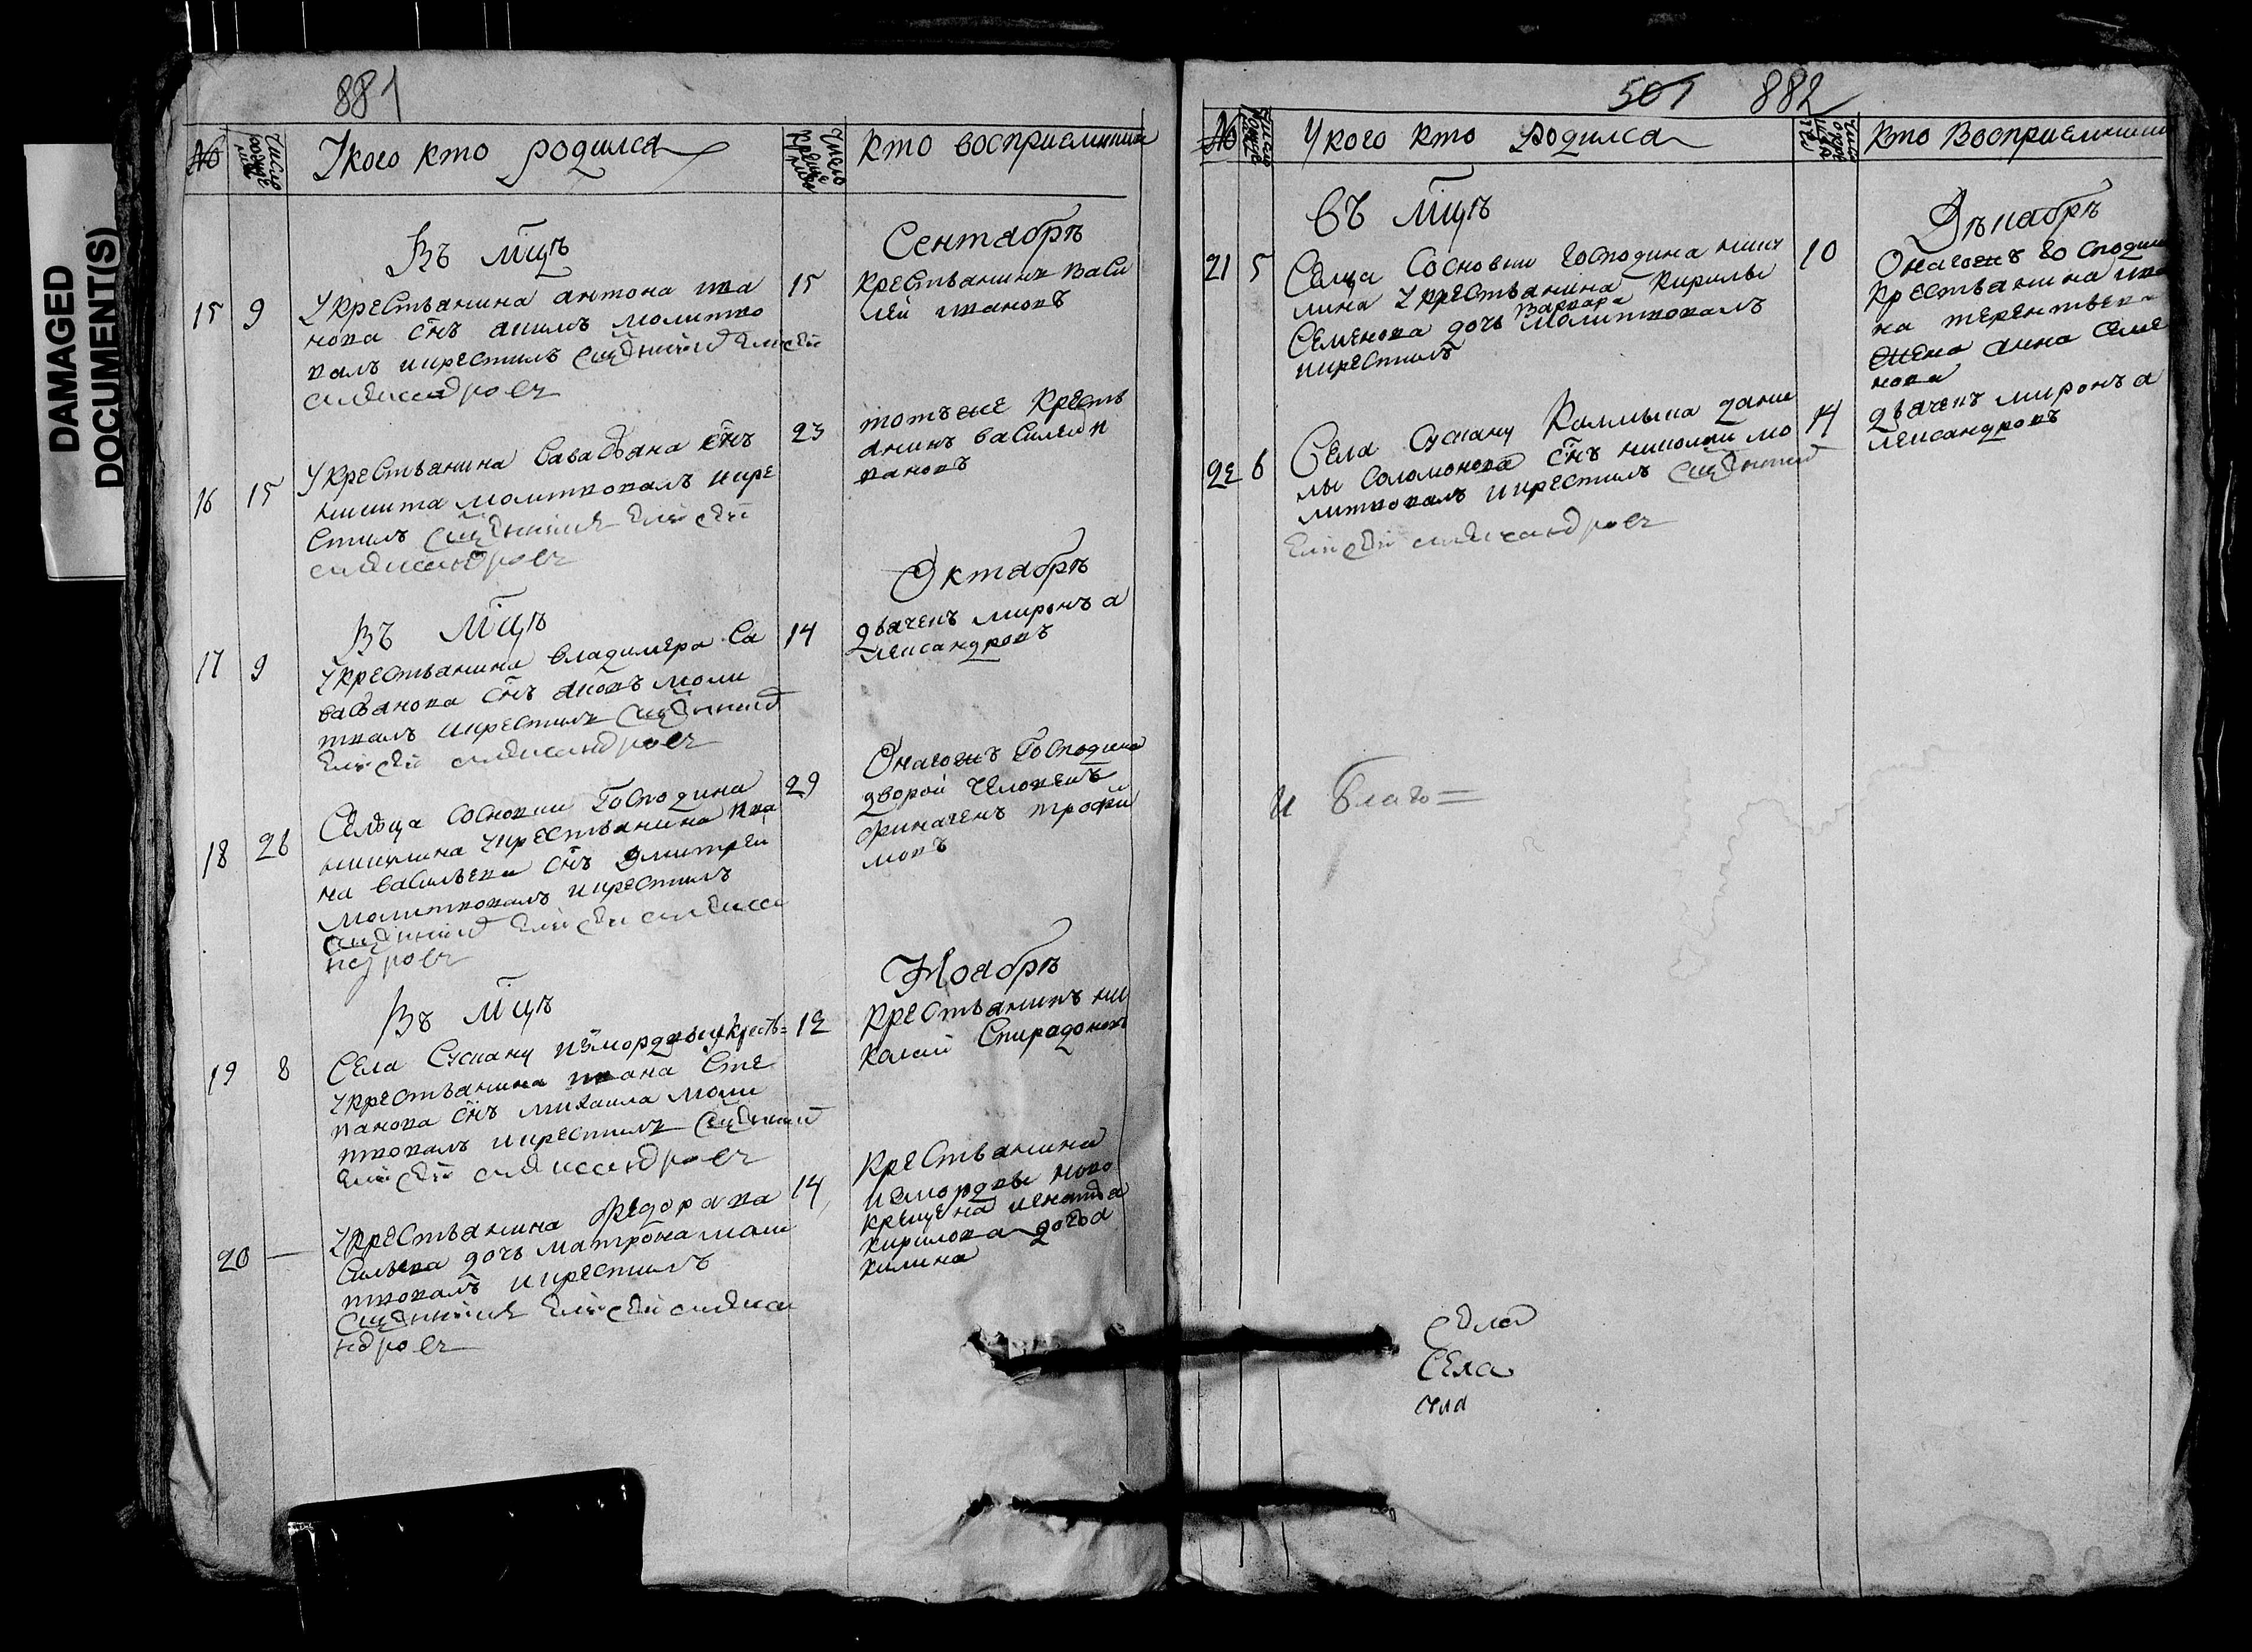 DAMAGED
DOCUMENT(S)
881
№
Число рождения
У кого кто родился
Число крещения
Кто восприемники
Въ мцѣ
Сентябрѣ
15 9
У крестьянина антона ива
нова снъ акимъ молитво
валъ икрестилъ сщенникъ Елисей
александровъ
15
крестьянинъ васи
лей ивановъ
16 15
У крестьянина Савастьяна снъ
никита молитвовалъ икре
стилъ сщенникъ Елисей
александровъ
23
тотъже кресть
янинъ василей и
вановъ
Въ мцѣ
Октябрѣ
17 9
У крестьянина владимера Са
вастьянова снъ яковъ моли
твалъ икрестилъ сщенникъ
Елисей александровъ
14
дьячекъ миронъ а
лександровъ
18 26
Сельца сосновки Господина
микулина укрестьянина ива
на васильева снъ Дмитрей
молитвовалъ икрестилъ
сщенникъ Елисей алекса
ндровъ
29
Онагожъ Господина
дворой человекъ
трофи
мовъ
Въ мцѣ
Ноябрѣ
19 8
Села Сускану измордвы
укрестьянина ивана Сте
панова снъ михаила моли
твовалъ икрестилъ сщенникъ
Елисей александровъ
12
крестьянинъ ни
колай Спирадоновъ
20 —
Укрестьянина Федора ва
сильева дочь матрона моли
твовалъ икрестилъ
сщенникъ Елисей алекса
ндровъ
14
крестьянина
измордвы ново
крещена игнатья
кирилова дочь а
килина
501 882
№
У кого кто родился
Кто Восприемники
въ мцѣ
Дѣкабрѣ
21 5
Сельца Сосновки Господина мику
лина Укрестьянина кирилы
Семенова дочь Варвара молитвовалъ
икрестилъ
10
Онагожъ Господина
крестьянина ива
на терентьева
жена анна семе
нова
22 6
Села Сускану Калмыка дани
лы Соломонова снъ николай мо
литвовалъ икрестилъ сщенникъ
Елисей александровъ
14
дьячекъ миронъ а
лександровъ
и благо=
села
Села